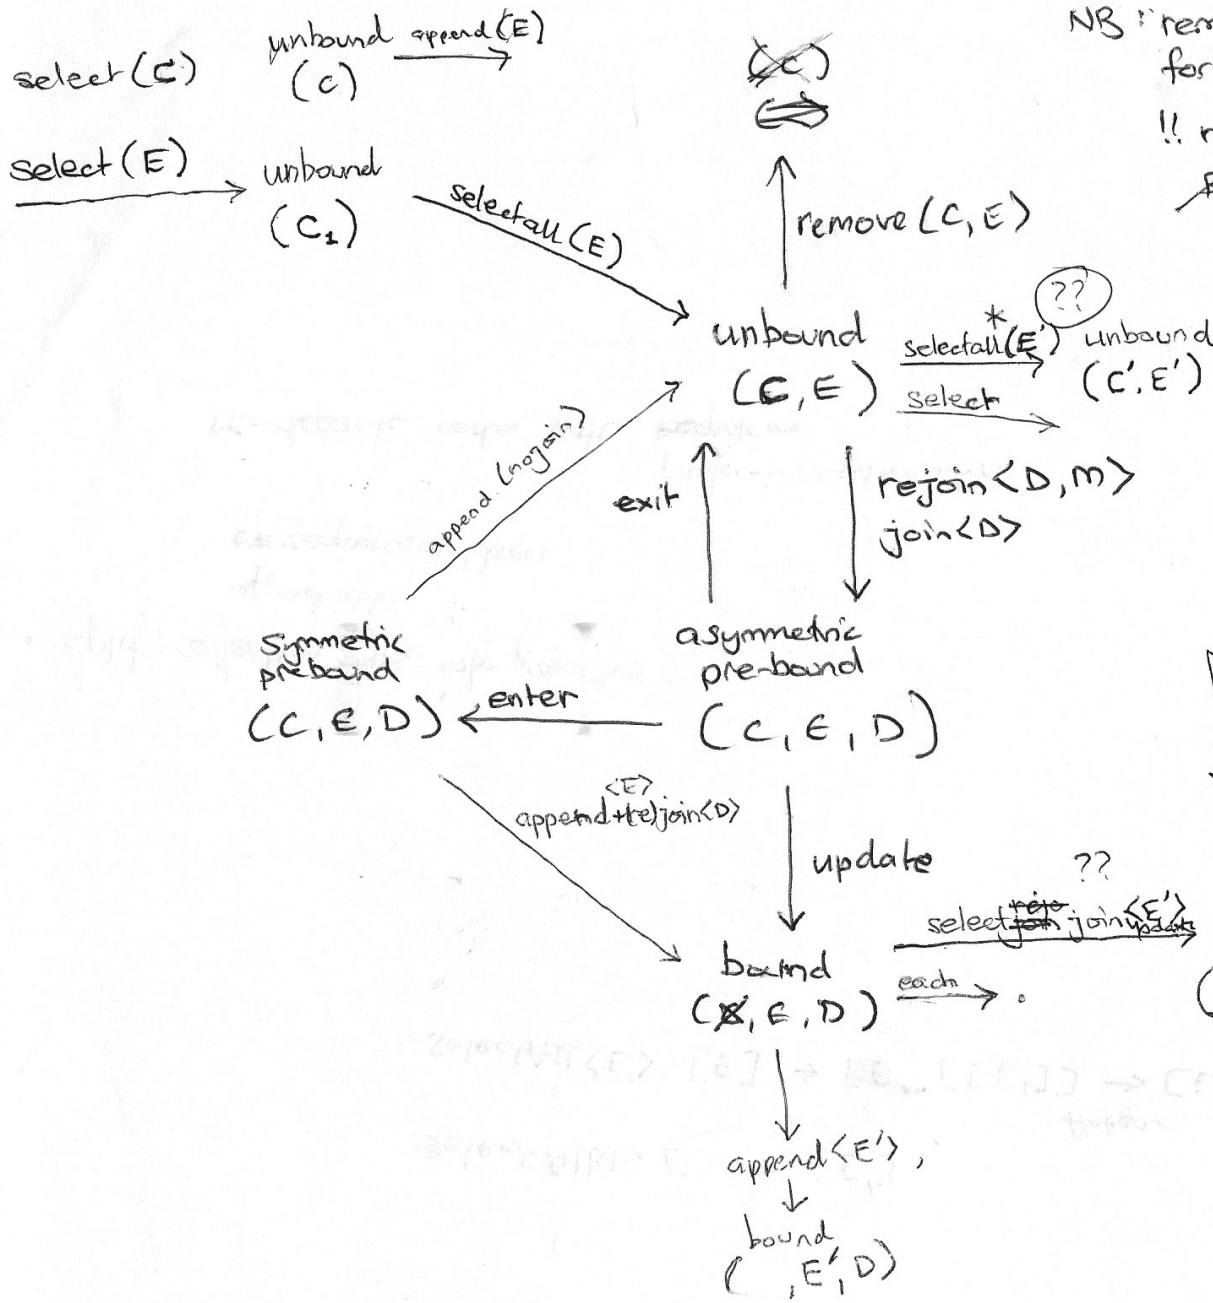 NB : rem
select(C)
unbound
(C)
append(E)
(C)
for
!! r
select(E)
unbound
(C1)
selectall(E)
remove(C, E)
??
unbound
(C, E)
*
selectall(E')
select
unbound
(C', E')
append (nojoin)
exit
rejoin<D, m>
join<D>
symmetric
prebound
(C, E, D)
enter
asymmetric
pre-bound
(C, E, D)
<E>
append+(re)join<D>
update
??
select join <E'>
update
bound
( , E, D)
each
.
(
append<E'>,
bound
( , E', D)